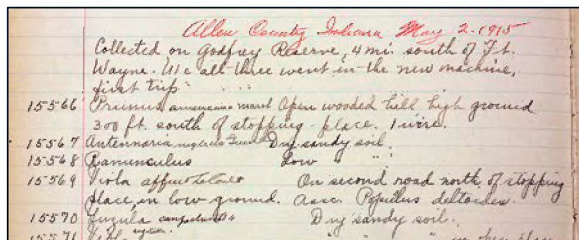 Allen County Indiana May 2-1915
Collected on Godfrey Reserve, 4 mi. south of Ft.
Wayne. We all three went in the new machine,
first trip.
15566 Prunus americana Open wooded hill high ground
300 ft. south of stopping place.
15567 Antennaria neglecta Dry sandy soil.
15568 Ranunculus Low " "
15569 Viola affinis On second road north of stopping
place, on low ground. Assc. Populus deltoides.
15570 Luzula campestris Dry sandy soil.
15571